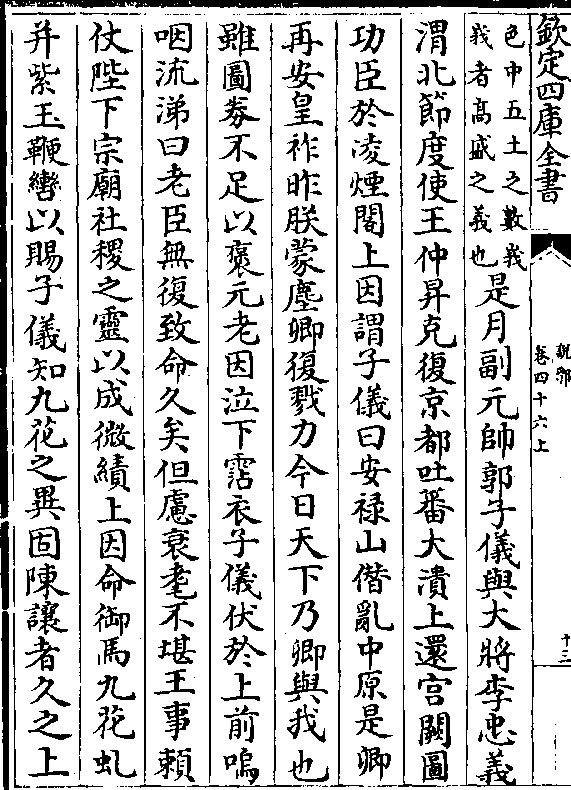 欽定四庫全書
説郛
卷四十六上
十三
色中五土之數我
我者髙盛之義也
是月副元帥郭子儀與大將李忠義
渭北節度使王仲昇克復京都吐番大潰上還宫闕圖
功臣於凌煙閣上因謂子儀曰安禄山僭亂中原是卿
再安皇祚昨朕蒙塵卿復戮力今日天下乃卿與我也
雖圖券不足以襃元老因泣下霑衣子儀伏於上前嗚
咽流涕曰老臣無復致命久矣但慮衰耄不堪王事頼
仗陛下宗廟社稷之靈以成微績上因命御馬九花虬
并紫玉鞭轡以賜子儀知九花之異固陳讓者久之上